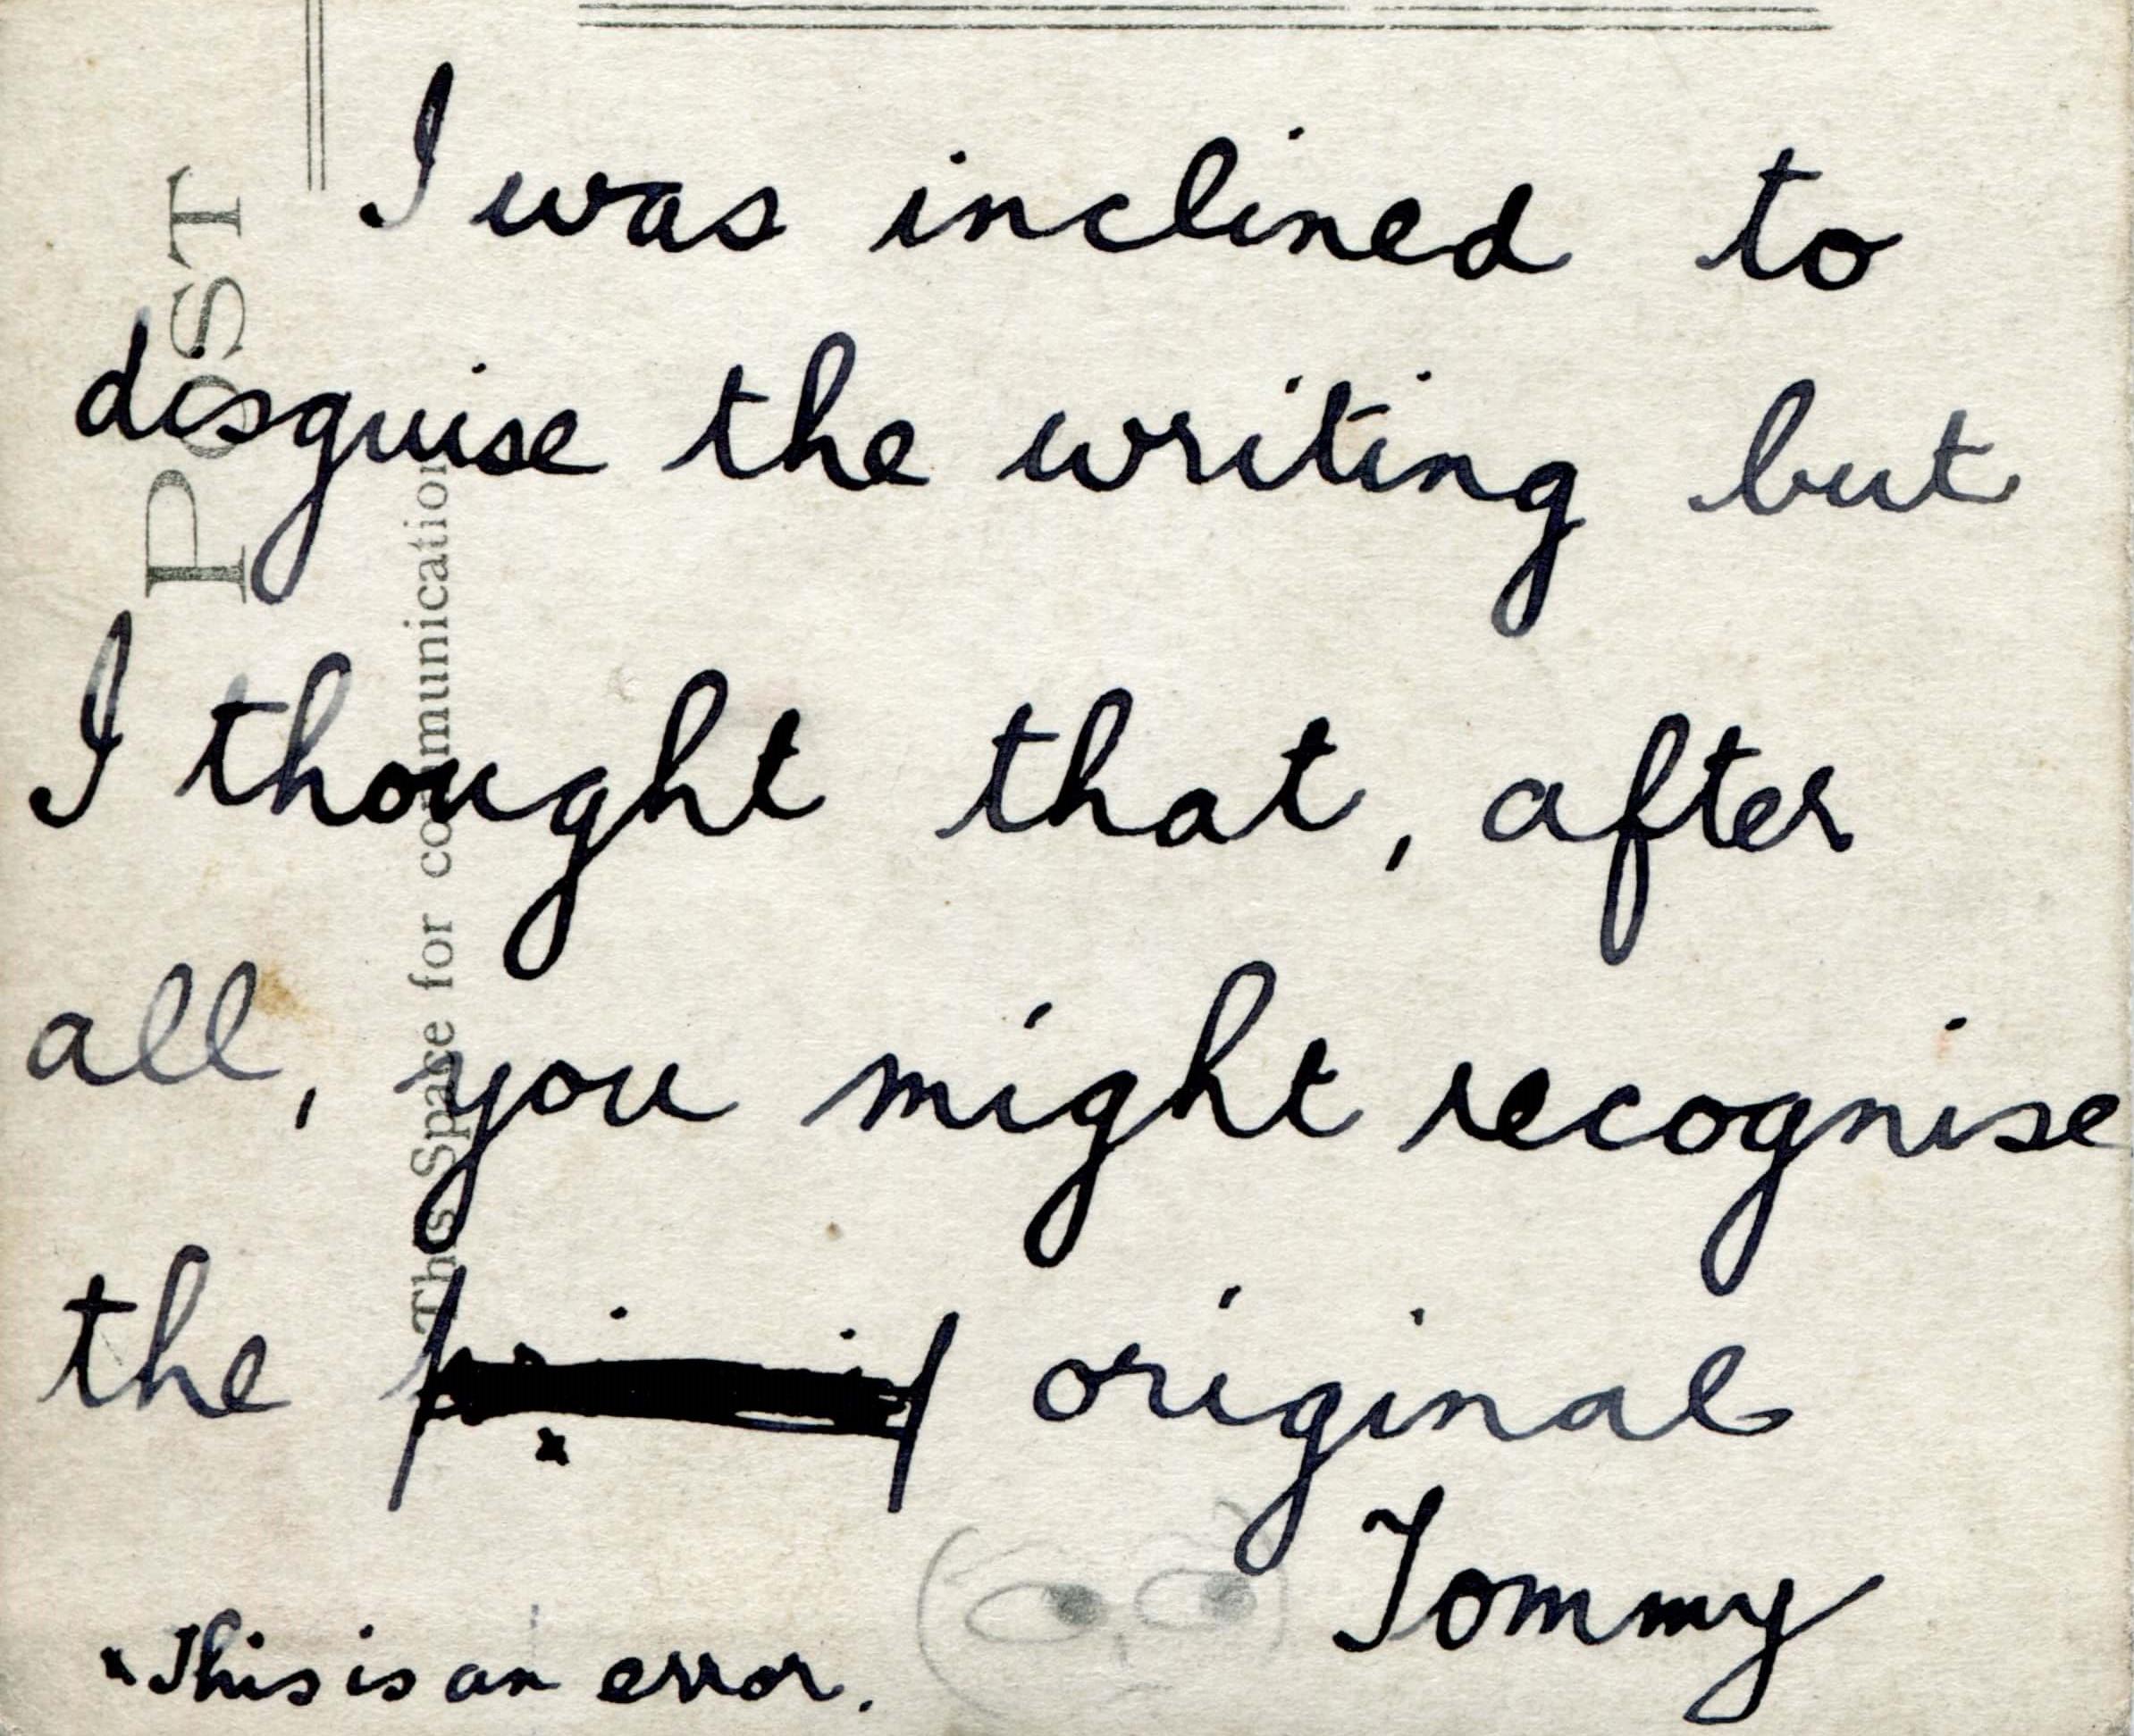 I was inclined to
disguise the writing but
I thought that, after
all, you might recognise
the original
Tommy
× This is an error.
POST
This Space for communication